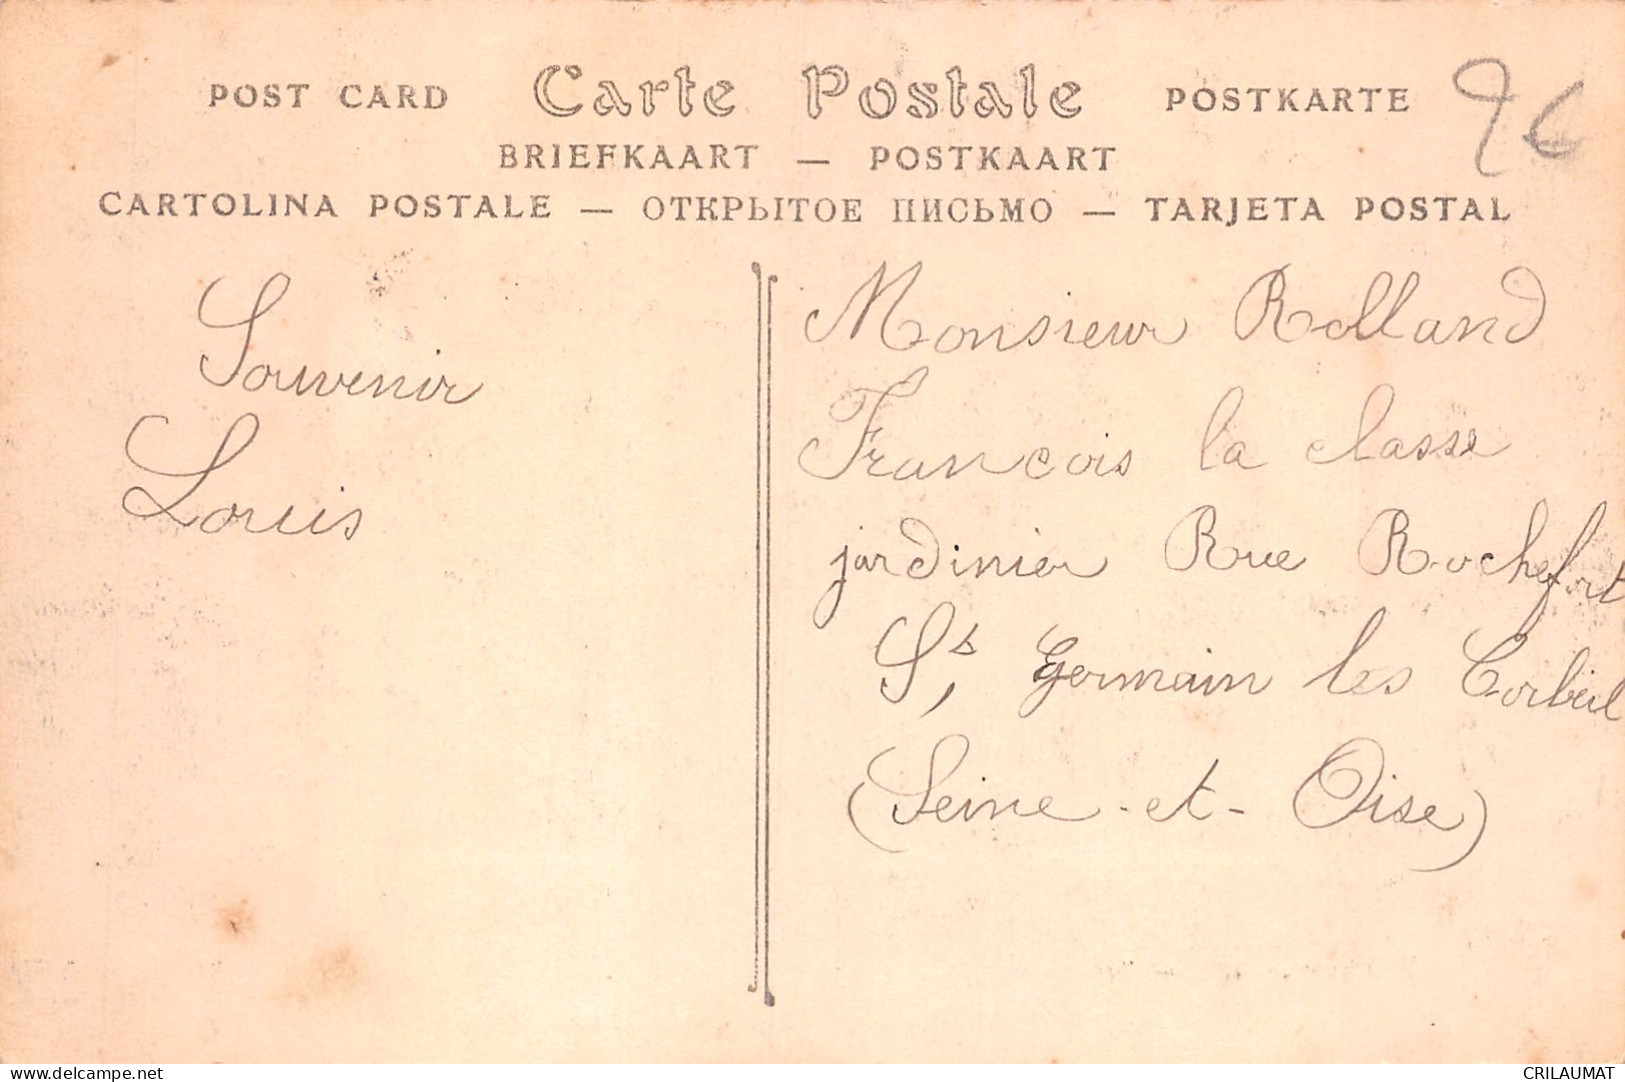 POST CARD Carte Postale POSTKARTE
BRIEFKAART — POSTKAART
CARTOLINA POSTALE — ОТКРЫТОЕ ПИСЬМО — TARJETA POSTAL
Souvenir
Louis
Monsieur Rolland
Francois la classe
jardinier Rue Rochefort
St, Germain les Corbeil
(Seine-et-Oise)
delcampe.net
CRILAUMAT